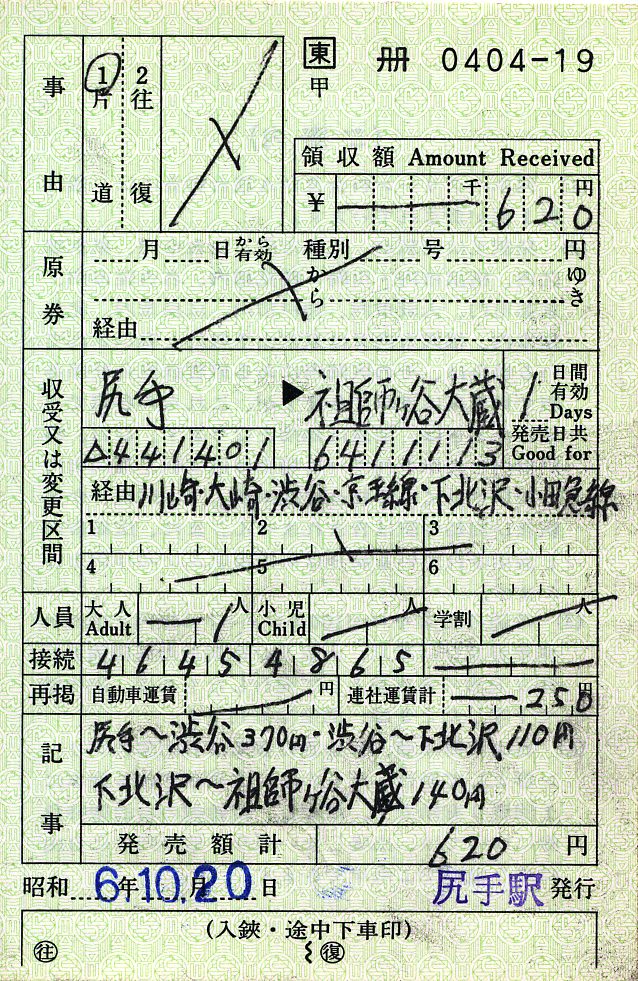 東 冊 0404-19
甲
事由 1片道 2往復
領収額 Amount Received
¥ 千 620 円
原券 月 日から有効 種別 号 円
から ゆき
経由
収受又は変更区間 尻手 ▶ 祖師ヶ谷大蔵 1 日間有効 Days
△441401 6411113 発売日共 Good for
経由 川崎・大崎・渋谷・京王線・下北沢・小田急線
1 2 3
4 5 6
人員 大人 Adult 1人 小児 Child 人 学割 人
接続 4645 4865
再掲 自動車運賃 円 連社運賃計 250円
記事 尻手〜渋谷370円・渋谷〜下北沢110円
下北沢〜祖師ヶ谷大蔵140円
発売額計 620 円
昭和 6年10月20日 尻手駅 発行
(入鋏・途中下車印)
往 〜 復